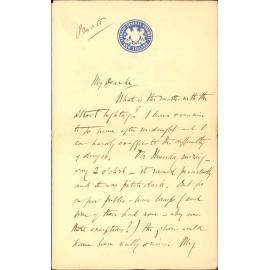 Private
My dear
What is the matter with the
street lighting? I have occasion
to go home after midnight and I
can hardly exaggerate the difficulty
of 
On Thursday morning
say 2 o'clock — it rained persistently
and it was pitch dark. But for
a few public-house lamps (and
some of these had gone — why were
these exceptions?) the gloom would
have been really serious. My